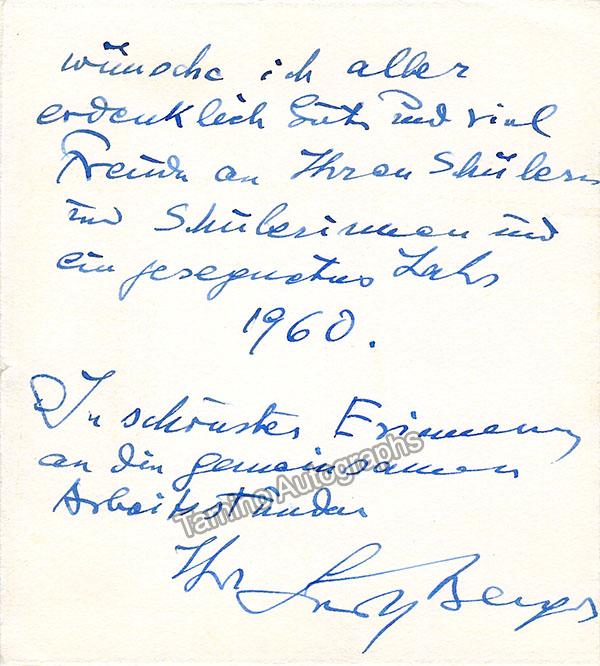 wünsche ich aller
erdenklich Gute und viel
Freude an Ihren Schülern
und Schülerinnen und
ein gesegnetes Jahr
1960.
In schönster Erinnerung
an die gemeinsamen
Arbeitsstunden
Tamino Autographs
Ihr Ludwig Berger